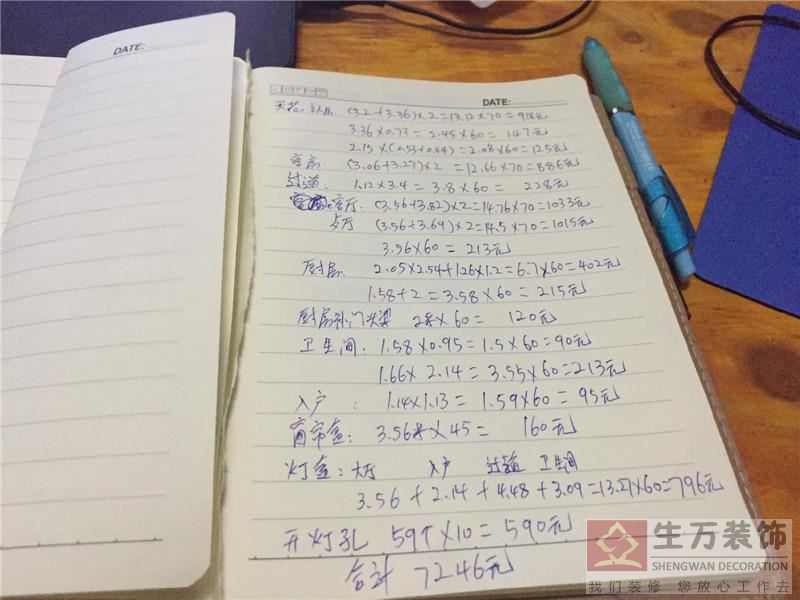 DATE:
DATE:
天花 主人房 (3.2+3.36)×2=13.12×70=918元
3.36×0.73=2.45×60=147元
2.15×(0.53+0.44)=2.08×60=125元
客房: (3.06+3.27)×2=12.66×70=886元
过道: 1.12×3.4=3.8×60=228元
客厅: (3.56+3.82)×2=14.76×70=1033元
(3.56+3.69)×2=14.5×70=1015元
3.56×60=213元
厨房: 2.05×2.54+1.26×1.2=6.7×60=402元
1.58+2=3.58×60=215元
厨房补门头梁 2米×60=120元
卫生间: 1.58×0.95=1.5×60=90元
1.66×2.14=3.55×60=213元
入户: 1.14×1.13=1.59×60=95元
窗帘盒: 3.56米×45=160元
灯盒: 大厅 入户 过道 卫生间
3.56+2.14+4.48+3.09=13.27×60=796元
开灯孔 59个×10=590元
合计 7246元
生万装饰
SHENGWAN DECORATION
我们装修 您放心工作去